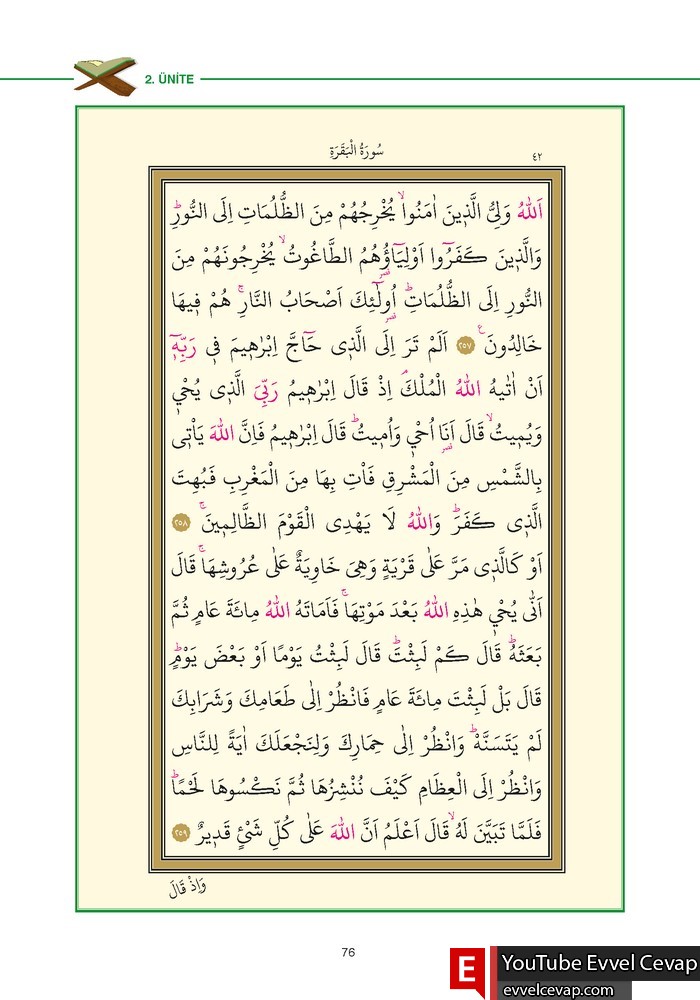 2. ÜNİTE
سُورَةُ الْبَقَرَةِ
٤٢
اَللّٰهُ وَلِيُّ الَّذ۪ينَ اٰمَنُواۙ يُخْرِجُهُمْ مِنَ الظُّلُمَاتِ اِلَى النُّورِۜ
وَالَّذ۪ينَ كَفَرُٓوا اَوْلِيَٓاؤُ۬هُمُ الطَّاغُوتُۙ يُخْرِجُونَهُمْ مِنَ
النُّورِ اِلَى الظُّلُمَاتِۜ اُو۬لٰٓئِكَ اَصْحَابُ النَّارِۚ هُمْ ف۪يهَا
خَالِدُونَ۟ ﴿٢٥٧﴾ اَلَمْ تَرَ اِلَى الَّذ۪ى حَٓاجَّ اِبْرٰه۪يمَ ف۪ى رَبِّه۪ٓ
اَنْ اٰتٰيهُ اللّٰهُ الْمُلْكَۢ اِذْ قَالَ اِبْرٰه۪يمُ رَبِّيَ الَّذ۪ى يُحْي۪
وَيُم۪يتُۙ قَالَ اَنَا۬ اُحْي۪ وَاُم۪يتُۜ قَالَ اِبْرٰه۪يمُ فَاِنَّ اللّٰهَ يَأْت۪ى
بِالشَّمْسِ مِنَ الْمَشْرِقِ فَأْتِ بِهَا مِنَ الْمَغْرِبِ فَبُهِتَ
الَّذ۪ى كَفَرَۜ وَاللّٰهُ لَا يَهْدِى الْقَوْمَ الظَّالِم۪ينَۚ ﴿٢٥٨﴾
اَوْ كَالَّذ۪ى مَرَّ عَلٰى قَرْيَةٍ وَهِىَ خَاوِيَةٌ عَلٰى عُرُوشِهَاۚ قَالَ
اَنّٰى يُحْي۪ هٰذِهِ اللّٰهُ بَعْدَ مَوْتِهَاۚ فَاَمَاتَهُ اللّٰهُ مِائَةَ عَامٍ ثُمَّ
بَعَثَهُۜ قَالَ كَمْ لَبِثْتَۜ قَالَ لَبِثْتُ يَوْمًا اَوْ بَعْضَ يَوْمٍۜ
قَالَ بَلْ لَبِثْتَ مِائَةَ عَامٍ فَانْظُرْ اِلٰى طَعَامِكَ وَشَرَابِكَ
لَمْ يَتَسَنَّهْۜ وَانْظُرْ اِلٰى حِمَارِكَ وَلِنَجْعَلَكَ اٰيَةً لِلنَّاسِ
وَانْظُرْ اِلَى الْعِظَامِ كَيْفَ نُنْشِزُهَا ثُمَّ نَكْسُوهَا لَحْمًاۜ
فَلَمَّا تَبَيَّنَ لَهُۙ قَالَ اَعْلَمُ اَنَّ اللّٰهَ عَلٰى كُلِّ شَىْءٍ قَد۪يرٌ ﴿٢٥٩﴾
وَاِذْ قَالَ
76
E YouTube Evvel Cevap
evvelcevap.com